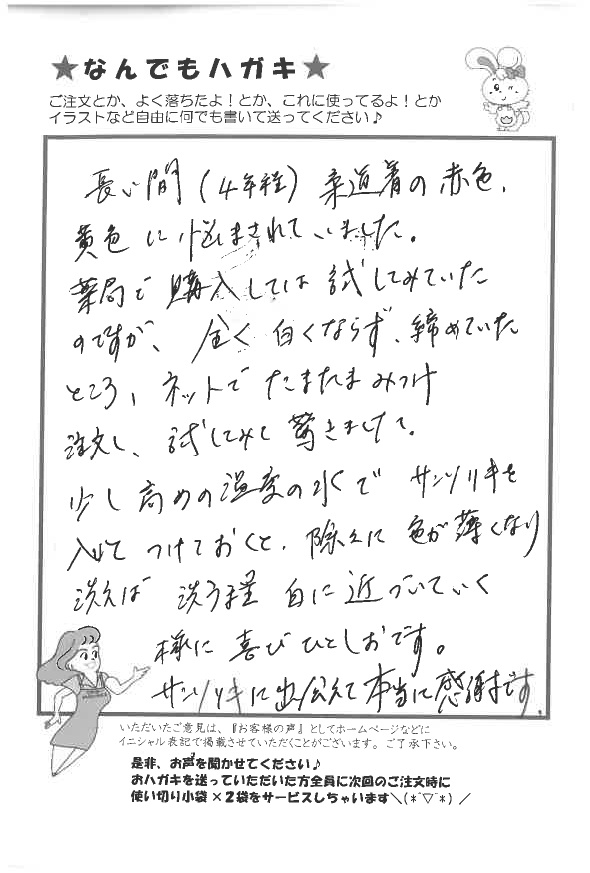 ★なんでもハガキ★
ご注文とか、よく落ちたよ!とか、これに使ってるよ!とか
イラストなど自由に何でも書いて送ってください♪
長い間(4年程)柔道着の赤色、
黄色に悩まされていました。
薬局で購入しては試してみていた
のですが、全く白くならず、締めていた
ところ、ネットでたまたまみつけ
注文し、試してみて驚きました。
少し高めの温度の水でサンソリキを
入れてつけておくと、除々に色が薄くなり
洗えば洗う程白に近づいていく
様に喜びひとしおです。
サンソリキに出会えて本当に感謝です。
いただいたご意見は、『お客様の声』としてホームページなどに
イニシャル表記で掲載させていただくことがございます。ご了承下さい。
是非、お声を聞かせてください♪
おハガキを送っていただいた方全員に次回のご注文時に
使い切り小袋×2袋をサービスしちゃいます\(*^▽^*)/